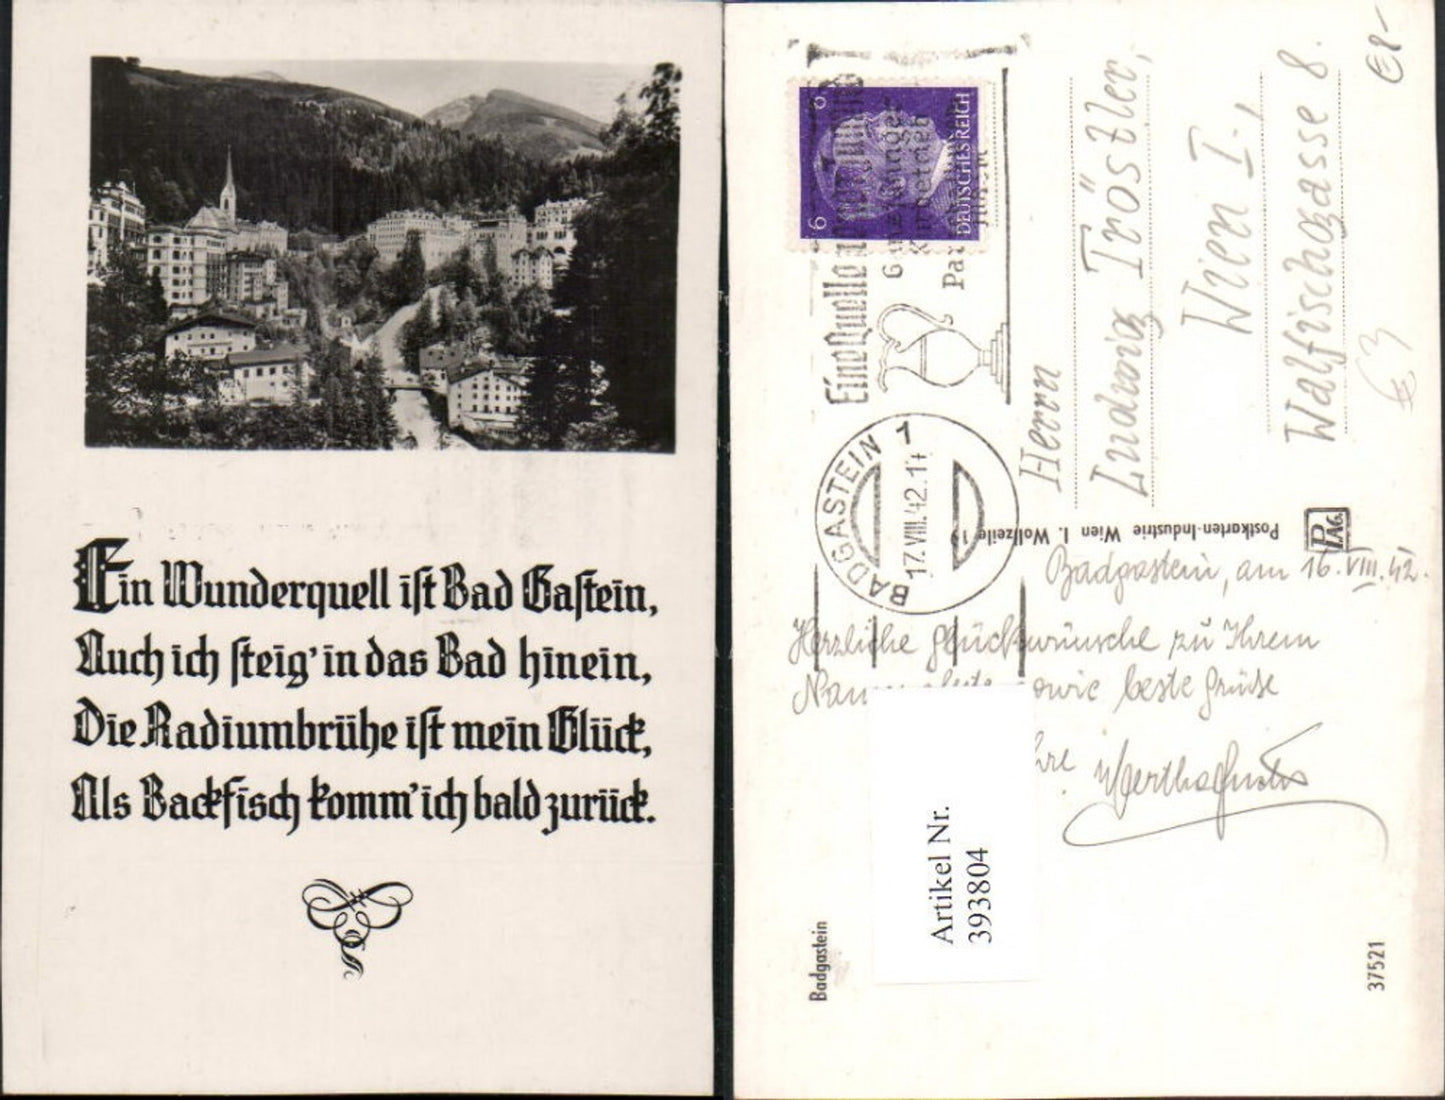 Ein Wunderquell ist Bad Gastein,
Auch ich steig' in das Bad hinein,
Die Radiumbrühe ist mein Glück,
Als Backfisch komm' ich bald zurück.
6 6
DEUTSCHES REICH
Eine Quelle
BADGASTEIN 1
17.VIII.42.1
Herrn
Ludwig Tröstler,
Wien I.,
Walfischgasse 8.
€8-
€3
Postkarten-Industrie Wien I. Wollzeile
PIAG.
Badgastein, am 16.VIII.42.
Herzliche Glückwünsche zu Ihrem
beste Grüße
Artikel Nr.
393804
Badgastein
37521